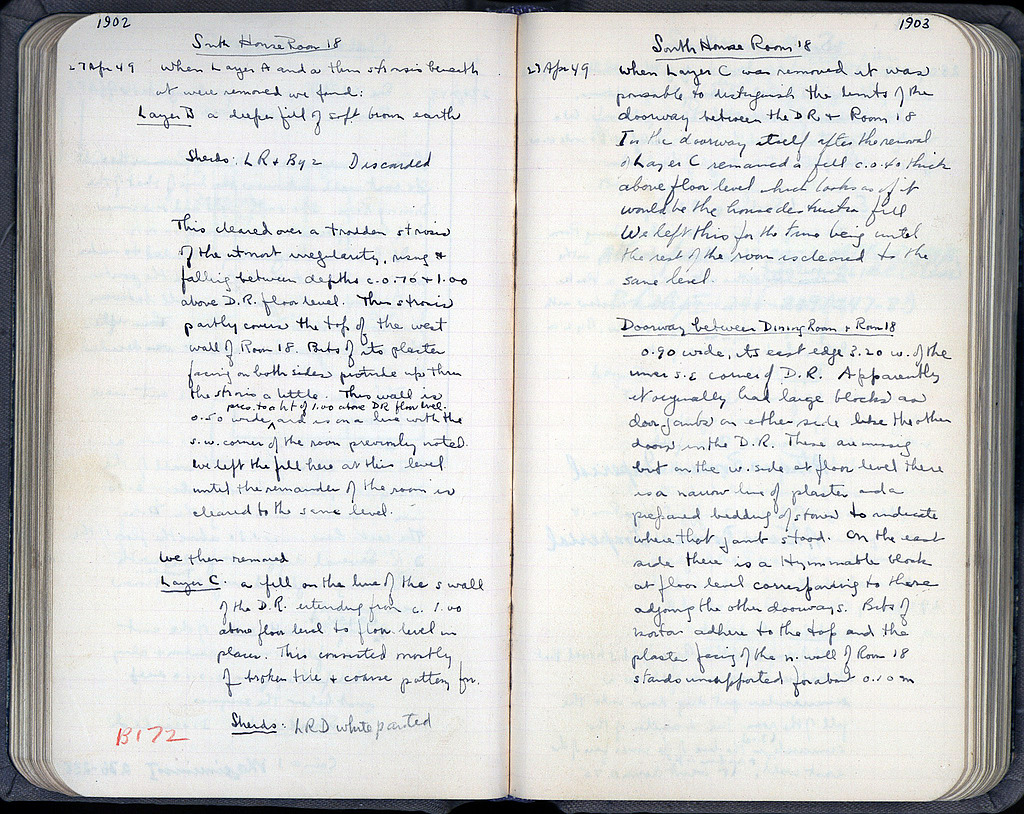 1902
South House Room 18
27 Apr 49 When Layer A and a thin strosis beneath
it were removed we find:
Layer B a deeper fill of soft brown earth
Sherds: LR + Byz Discarded
This cleared over a trodden strosis
of the utmost irregularity, rising +
falling between depths c. 0.70 + 1.00
above D.R. floor level. This strosis
partly covers the top of the west
wall of Room 18. Bits of its plaster
facing on both sides protrude up thru
the strosis a little. This wall is
pres. to a ht of 1.00 above DR floor level.
0.50 wide ^ and is on a line with the
s.w. corner of the room previously noted.
We left the fill here at this level
until the remainder of the room is
cleared to the same level.
We then removed
Layer C. a fill on the line of the s wall
of the D.R. extending from c. 1.00
above floor level to floor level in
places. This consisted mostly
of broken tile + coarse pottery frs.
Sherds: LRD white painted
B172
1903
South House Room 18
27 Apr 49 When Layer C was removed it was
possible to distinguish the limits of the
doorway between the DR + Room 18
In the doorway itself after the removal
of Layer C remained a fill c. 0.40 thick
above floor level which looks as if it
would be the house destruction fill
We left this for the time being until
the rest of the room is cleared to the
same level.
Doorway between Dining Room + Room 18
0.90 wide, its east edge 3.20 w. of the
inner s.e corner of D.R. Apparently
it originally had large blocks as
door jambs on either side like the other
doors in the D.R. These are missing
but on the w. side at floor level there
is a narrow line of plaster and a
prepared bedding of stones to indicate
where that jamb stood. On the east
side there is a Hymmetable block
at floor level corresponding to those
adjoining the other doorways. Bits of
mortar adhere to the top and the
plaster facing of the n. wall of Room 18
stands unsupported for about 0.10 m